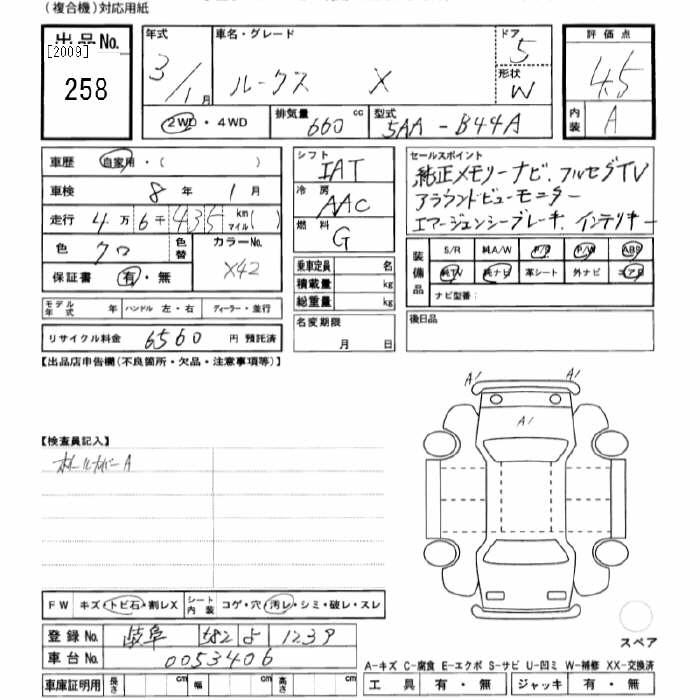 (複合機)対応用紙
出品No.
[2009]
258
年式
3/1月
車名・グレード
ルークス X
ドア
5
形状
W
評価点
4.5
内装
A
2WD・4WD
排気量
660
cc
型式
5AA-B44A
車歴
自家用・( )
車検
8年1月
走行
4万6千435
km
マイル( )
色
クロ
色替
カラーNo.
X42
保証書
有・無
モデル年式 年
ハンドル 左・右
ディーラー・並行
リサイクル料金 6560 円 預託済
シフト
IAT
冷房
AAC
燃料
G
乗車定員 名
積載量 kg
総重量 kg
名変期限
月 日
セールスポイント
純正メモリーナビ、フルセグTV
アラウンドビューモニター
エマージェンシーブレーキ、インテリキー
装備品
S/R 純A/W P/S P/W ABS
純TV 純ナビ 革シート 外ナビ エアB
ナビ型番:
後日品
【出品店申告欄(不良箇所・欠品・注意事項等)】
A1
A1
A1
【検査員記入】
ホイルカバーA
FW キズ・トビ石・割レX
シート内装 コゲ・穴・汚レ・シミ・破レ・スレ
登録No. 岐阜 582 よ 1239
車台No. 0053406
車庫証明用 長さ cm 幅 cm 高さ cm
スペア
A-キズ C-腐食 E-エクボ S-サビ U-凹ミ W-補修 XX-交換済
工具 有・無 ジャッキ 有・無